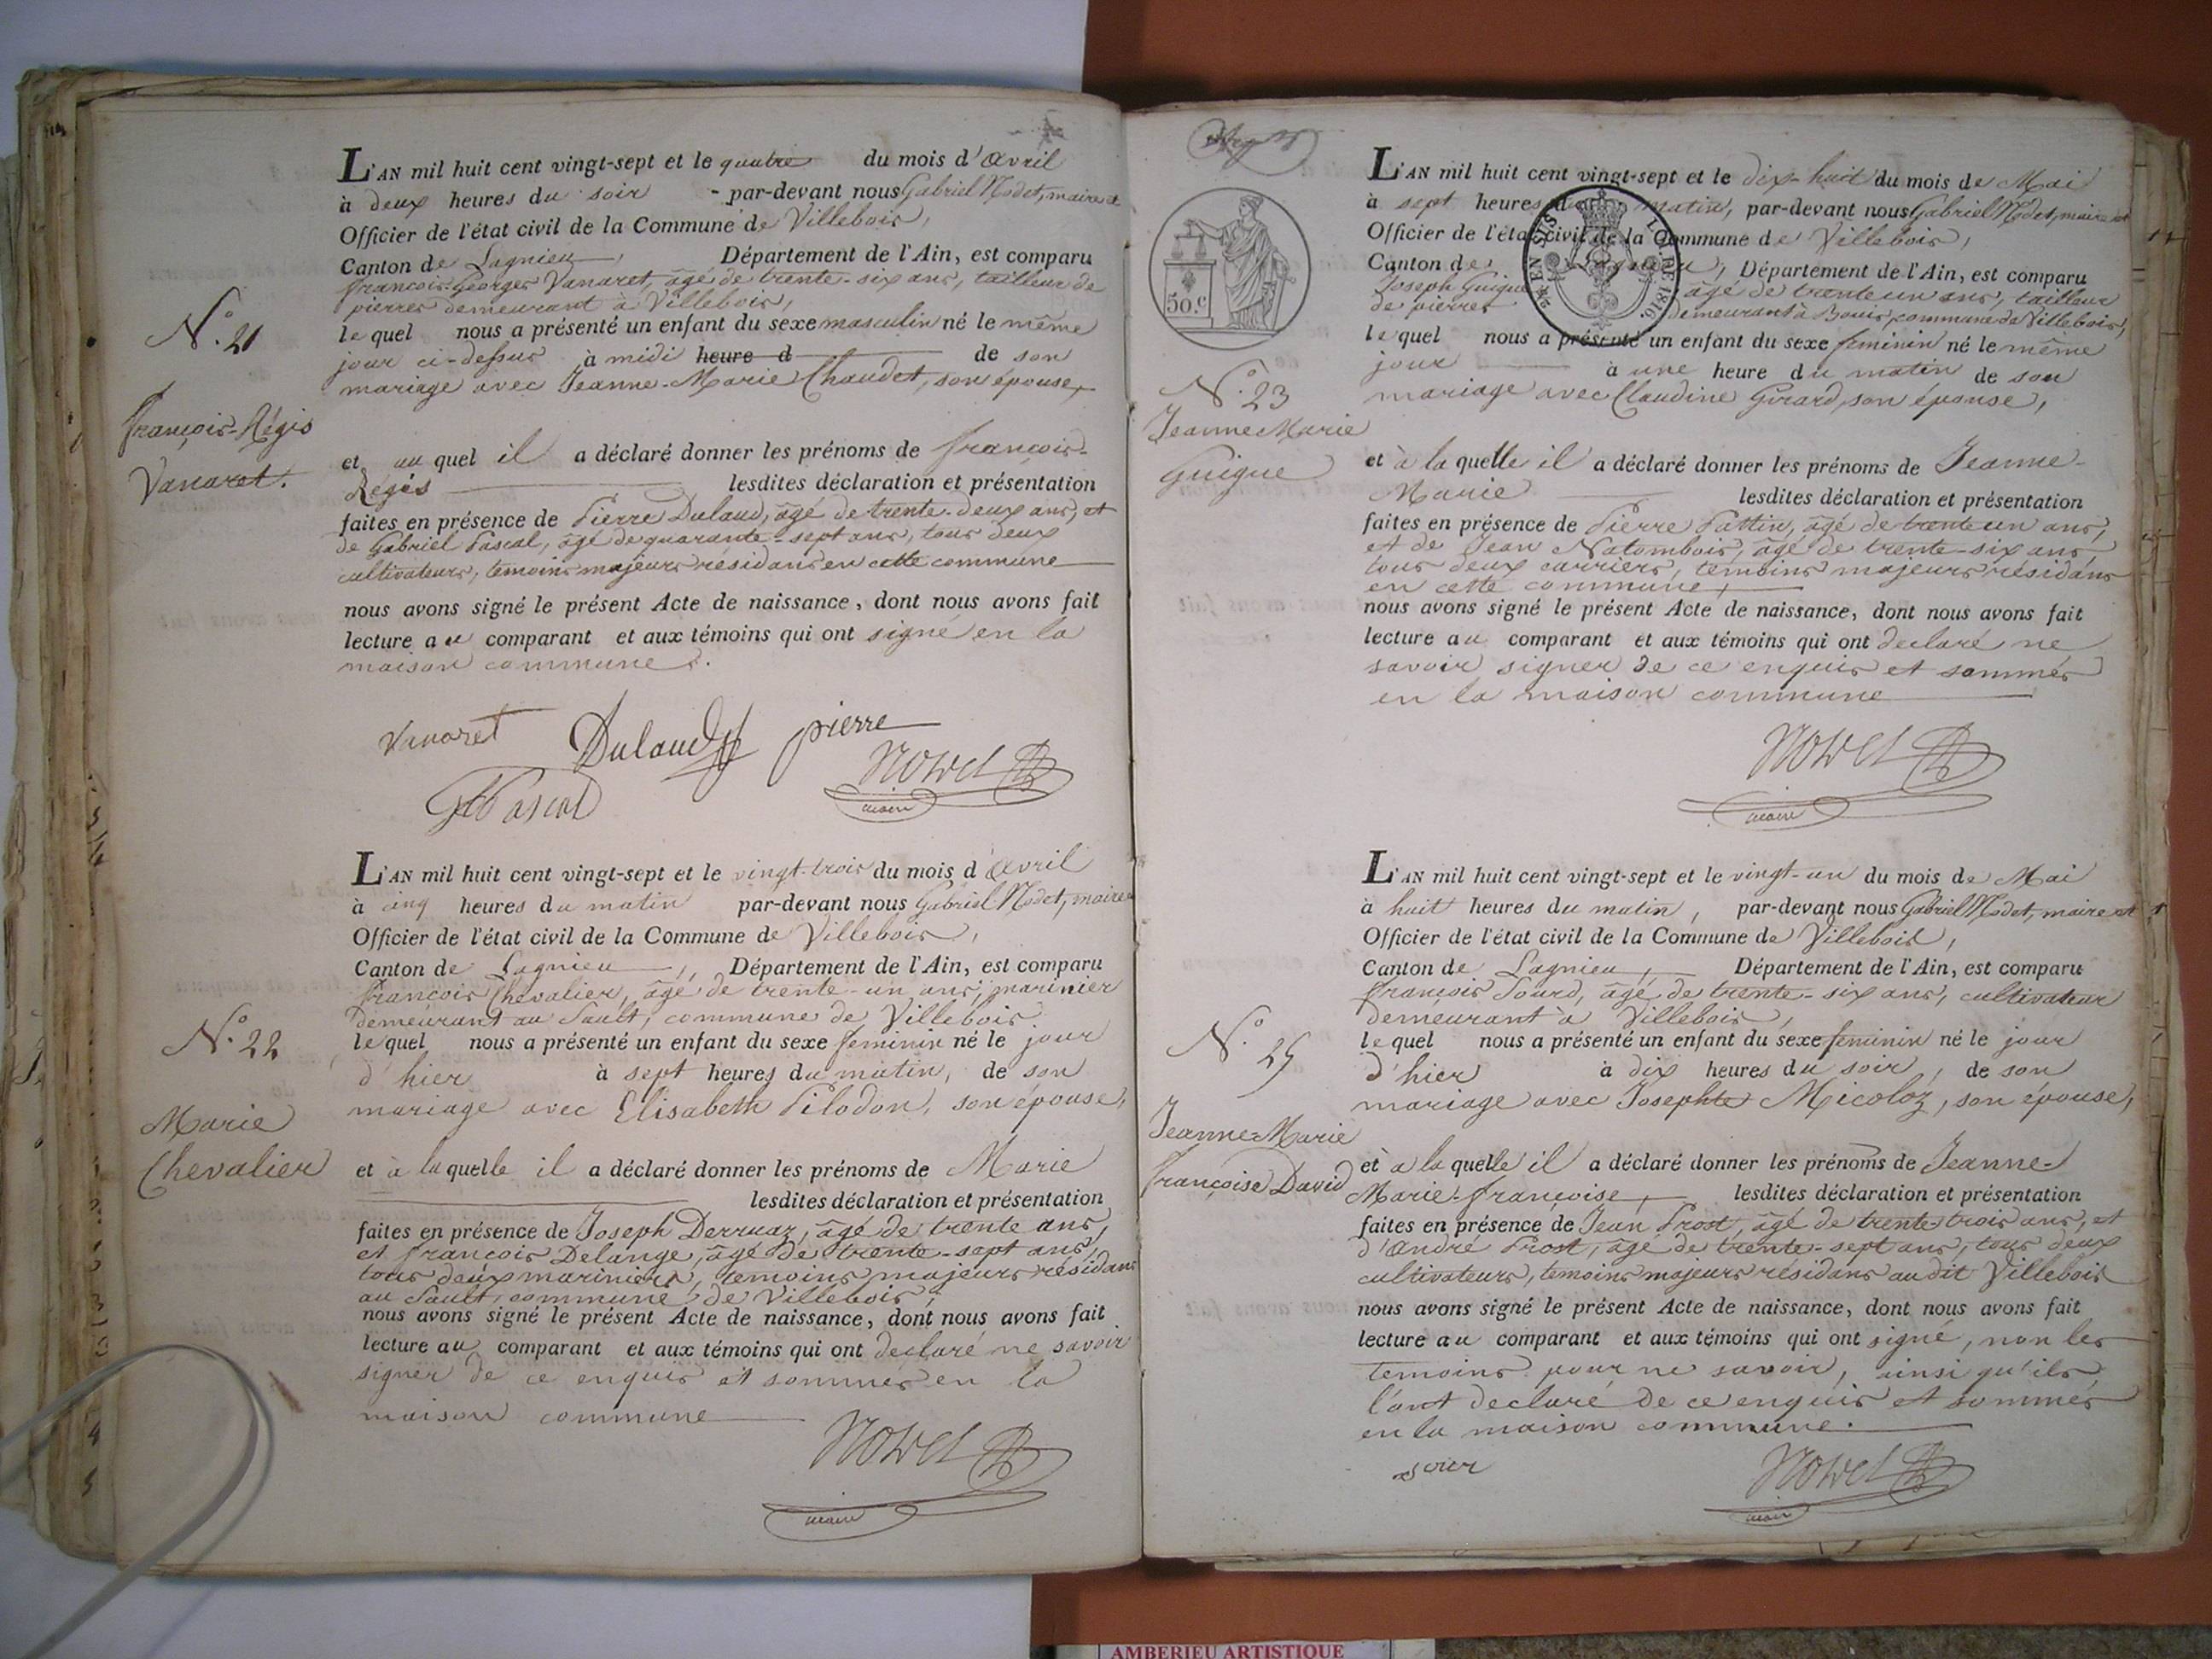 L'AN mil huit cent vingt-sept et le quatre du mois d'Avril
à deux heures du soir - par-devant nous Gabriel Nodet, maire et
Officier de l'état civil de la Commune de Villebois,
Canton de Lagnieu, Département de l'Ain, est comparu
François-Georges Vanaret, âgé de trente-six ans, tailleur de
pierres demeurant à Villebois,
le quel nous a présenté un enfant du sexe masculin né le même
jour ci-dessus à midi heure d de son
mariage avec Jeanne-Marie Chaudet, son épouse,
N.° 21
François-Régis
Vanaret.
et au quel il a déclaré donner les prénoms de François-
Régis lesdites déclaration et présentation
faites en présence de Pierre Dulaud, âgé de trente-deux ans, et
de Gabriel Pascal, âgé de quarante-sept ans, tous deux
cultivateurs, temoins majeurs résidans en cette commune
nous avons signé le présent Acte de naissance, dont nous avons fait
lecture au comparant et aux témoins qui ont signé en la
maison commune.
Vanaret Dulaud pierre
Pascal Nodet
maire
L'AN mil huit cent vingt-sept et le vingt-trois du mois d'Avril
à cinq heures du matin par-devant nous Gabriel Nodet, maire
Officier de l'état civil de la Commune de Villebois,
Canton de Lagnieu, Département de l'Ain, est comparu
François Chevalier, âgé de trente-un ans, marinier
demeurant au Sault, commune de Villebois
le quel nous a présenté un enfant du sexe feminin né le jour
d'hier à sept heures du matin, de son
mariage avec Elisabeth Pilodon, son épouse,
N.° 22
Marie
Chevalier
et à la quelle il a déclaré donner les prénoms de Marie
lesdites déclaration et présentation
faites en présence de Joseph Derruaz, âgé de trente ans,
et François Delange, âgé de trente-sept ans,
tous deux mariniers, temoins majeurs résidans
au Sault, commune de Villebois,
nous avons signé le présent Acte de naissance, dont nous avons fait
lecture au comparant et aux témoins qui ont declaré ne savoir
signer de ce enquis et sommés en la
maison commune
Nodet
maire
50.c
EN SUS
L'AN mil huit cent vingt-sept et le dix-huit du mois de Mai
à sept heures du matin, par-devant nous Gabriel Nodet, maire et
Officier de l'état civil de la Commune de Villebois,
Canton de Lagnieu, Département de l'Ain, est comparu
Joseph Guigue âgé de trente un ans, tailleur
de pierres demeurant à Bouis, commune de Villebois,
le quel nous a présenté un enfant du sexe feminin né le même
jour à une heure du matin de son
mariage avec Claudine Girard, son épouse,
N.° 23
Jeanne Marie
Guigue
et à la quelle il a déclaré donner les prénoms de Jeanne-
Marie lesdites déclaration et présentation
faites en présence de Pierre Pattin, âgé de trente un ans,
et de Jean Natombois, âgé de trente-six ans,
tous deux carriers, témoins majeurs résidans
en cette commune,
nous avons signé le présent Acte de naissance, dont nous avons fait
lecture au comparant et aux témoins qui ont declaré ne
savoir signer de ce enquis et sommés
en la maison commune
Nodet
maire
L'AN mil huit cent vingt-sept et le vingt-un du mois de Mai
à huit heures du matin, par-devant nous Gabriel Nodet, maire et
Officier de l'état civil de la Commune de Villebois,
Canton de Lagnieu, Département de l'Ain, est comparu
François Sourd, âgé de trente-six ans, cultivateur
demeurant à Villebois,
le quel nous a présenté un enfant du sexe feminin né le jour
d'hier à dix heures du soir, de son
mariage avec Josephte Micoloz, son épouse,
N.°
Jeanne-Marie
Françoise David
et à la quelle il a déclaré donner les prénoms de Jeanne-
Marie-Françoise, lesdites déclaration et présentation
faites en présence de Jean Prost, âgé de trente-trois ans, et
d'André Prost, âgé de trente-sept ans, tous deux
cultivateurs, temoins majeurs résidans audit Villebois
nous avons signé le présent Acte de naissance, dont nous avons fait
lecture au comparant et aux témoins qui ont signé, non les
temoins pour ne savoir, ainsi qu'ils
l'ont declaré de ce enquis et sommés
en la maison commune.
Nodet
maire
AMBERIEU ARTISTIQUE